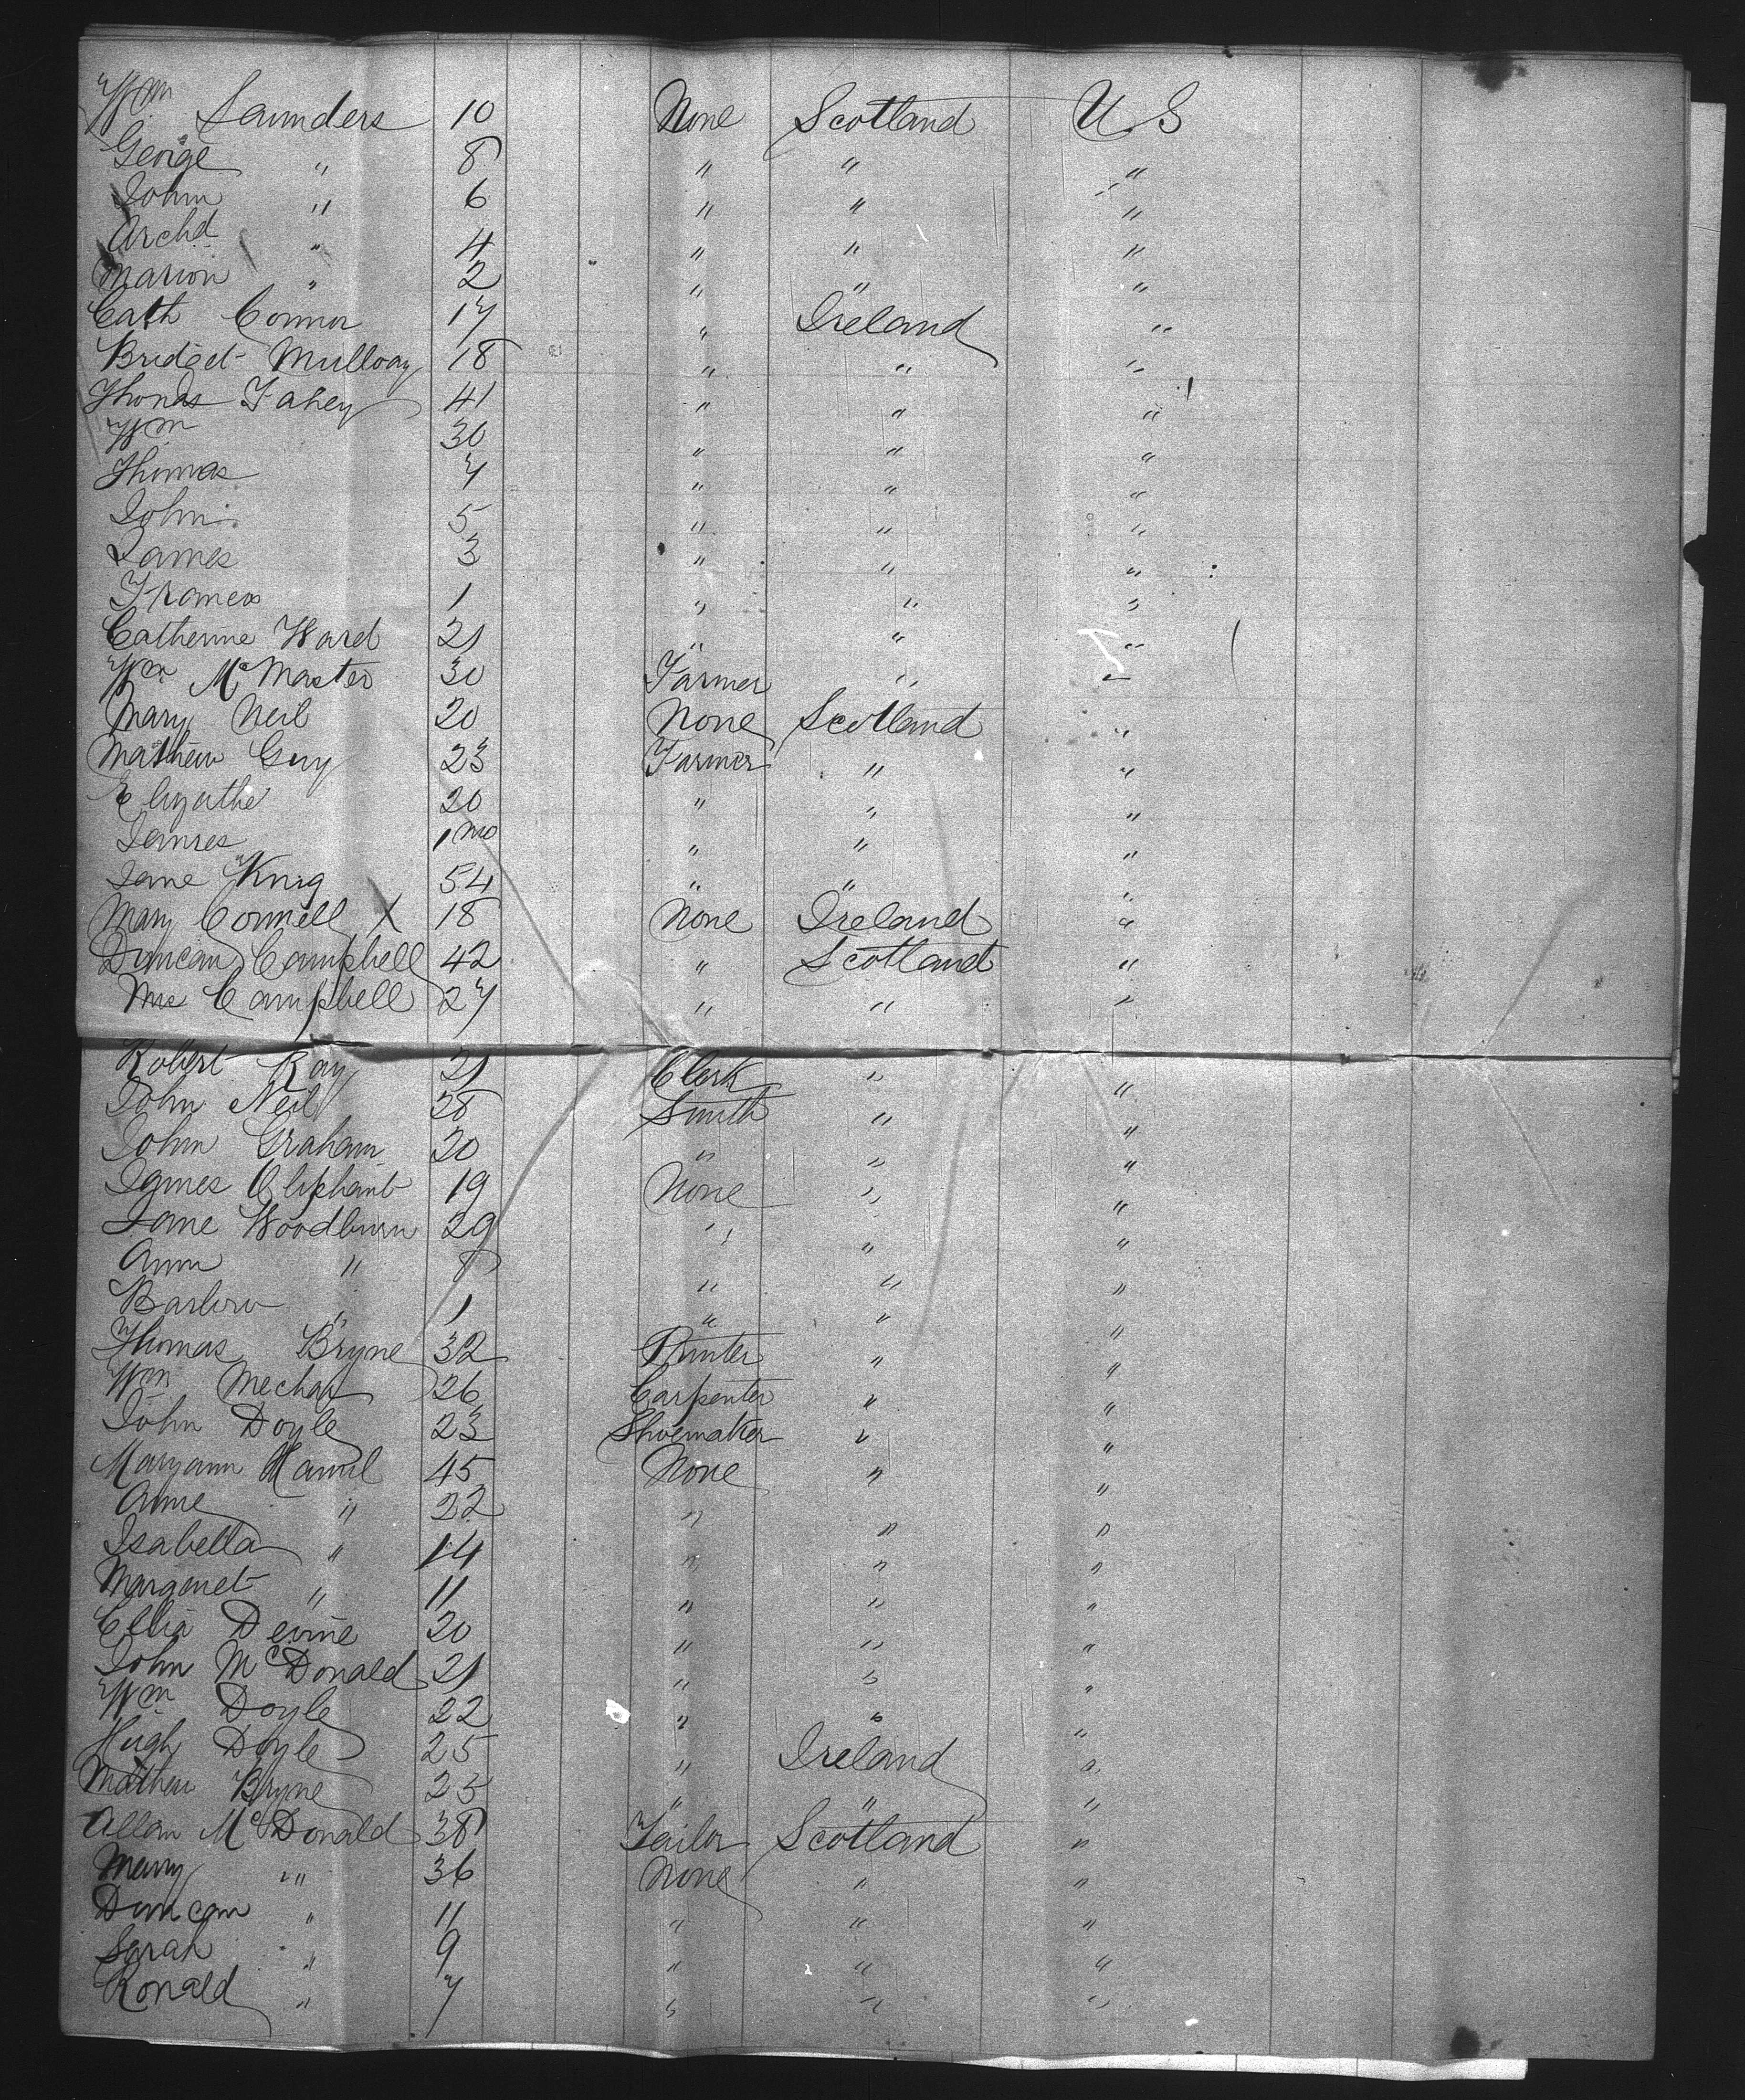 Wm Saunders 10 None Scotland U. S
George " 8 " " "
John " 6 " " "
Archd " 4 " " "
Marion " 2 " " "
Cath Connor 17 " Ireland "
Bridget Mulloay 18 " " "
Thomas Fahey 41 " " "
Wm 30 " " "
Thomas 7 " " "
John 5 " " "
James 3 " " "
Frances 1 " " "
Catherine Ward 21 " " "
Wm McMaster 30 Farmer " "
Mary Neil 20 None Scotland "
Mathew Guy 23 Farmer " "
Elizathe 20 " " "
James 1 mo " " "
Jane King 54 " " "
Mary Connell X 18 None Ireland "
Duncan Campbell 42 " Scotland "
Mrs Campbell 27 " " "
Robert Ray 21 Clerk " "
John Neil 28 Smith " "
John Graham 20 " " "
James Oliphant 19 None " "
Jane Woodburn 29 " " "
Ann " 8 " " "
Barlow " 1 " " "
Thomas Bryne 32 Printer " "
Wm Mechan 26 Carpenter " "
John Doyle 23 Shoemaker " "
Maryann Hamil 45 None " "
Anne " 22 " " "
Isabella " 14 " " "
Margaret " 11 " " "
Devine 20 " " "
John McDonald 21 " " "
Wm Doyle 22 " " "
Hugh Doyle 25 " Ireland "
Mathew Bryne 25 " " "
Allan McDonald 38 Tailor Scotland "
Mary " 36 None " "
Duncan " 11 " " "
Sarah " 9 " " "
Ronald " 7 " " "